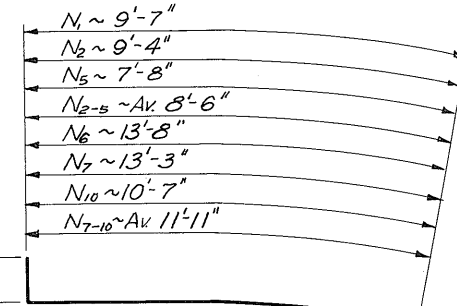 N₁ ~ 9'-7"
N₂ ~ 9'-4"
N₅ ~ 7'-8"
N₂₋₅ ~ Av. 8'-6"
N₆ ~ 13'-8"
N₇ ~ 13'-3"
N₁₀ ~ 10'-7"
N₇₋₁₀ ~ Av. 11'-11"